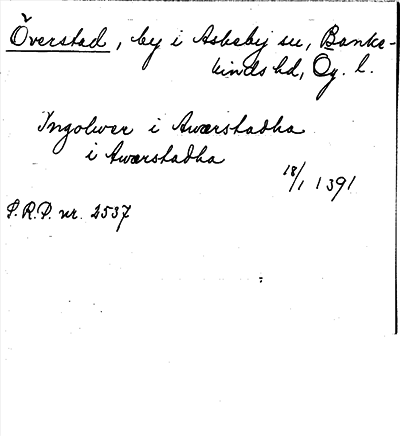 Överstad, by i Askeby sn, Banke-
kinds hd, Ög. l.
Ingolwer i Awærstadha
i Awærstadha
18/1 1391
S.R.P. nr. 2537